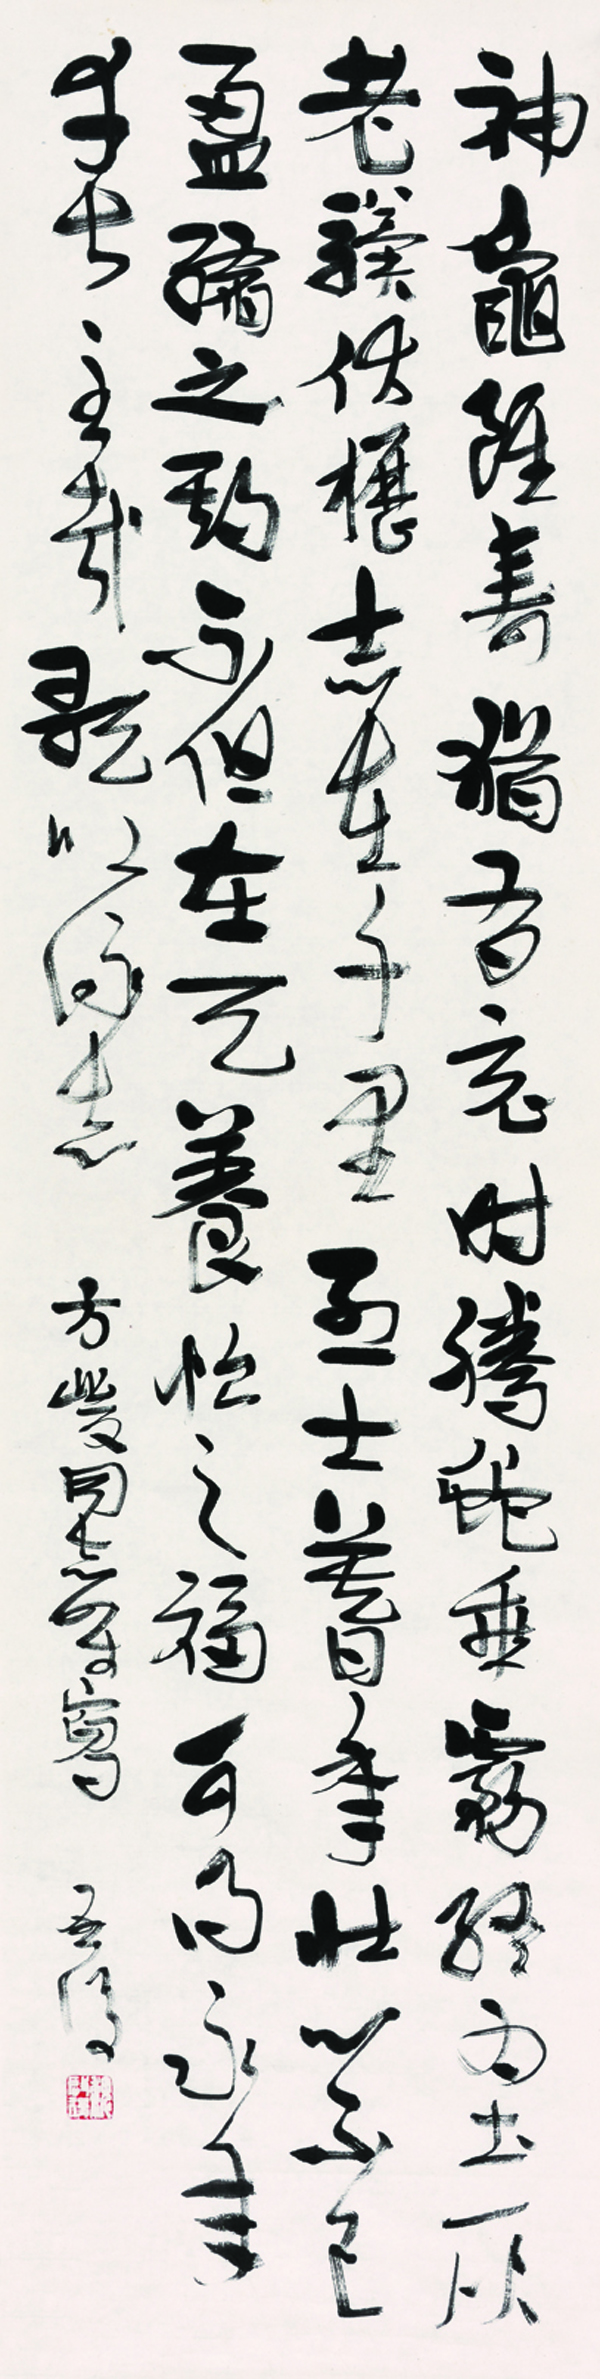 神龜雖壽猶有竟時騰蛇乘霧終為土灰
老驥伏櫪志在千里烈士暮年壯心不已
盈縮之期不但在天養怡之福可得永年
幸甚至哉歌以詠志 方 同志屬寫